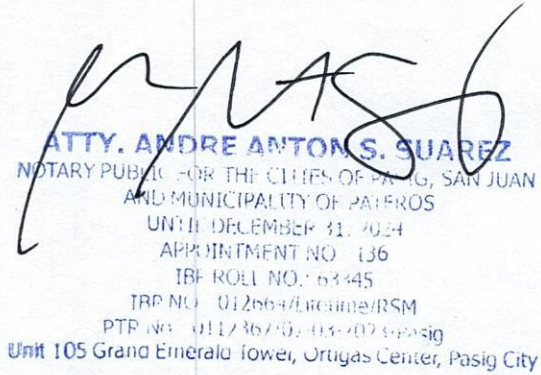 ATTY. ANDRE ANTON S. SUAREZ
NOTARY PUBLIC FOR THE CITIES OF PASIG, SAN JUAN
AND MUNICIPALITY OF PATEROS
UNTIL DECEMBER 31, 2024
APPOINTMENT NO 136
IBP ROLL NO. 63345
IBP NO 012664/Lifetime/RSM
PTR No
Unit 105 Grand Emerald Tower, Ortigas Center, Pasig City